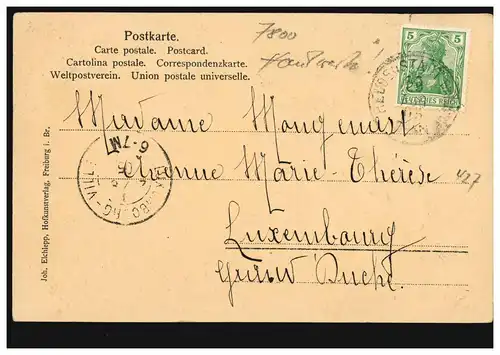 Postkarte.
Carte postale. Postcard.
Cartolina postale. Correspondenzkarte.
Weltpostverein. Union postale universelle.
7800
5 5
DEUTSCHES REICH
Madame Mongenast
Avenue Marie-Thérèse
427
Luxembourg
Grand Duché.
LUXEMBOURG-VILLE
6-7M
Joh. Elchlepp, Hofkunstverlag, Freiburg i. Br.